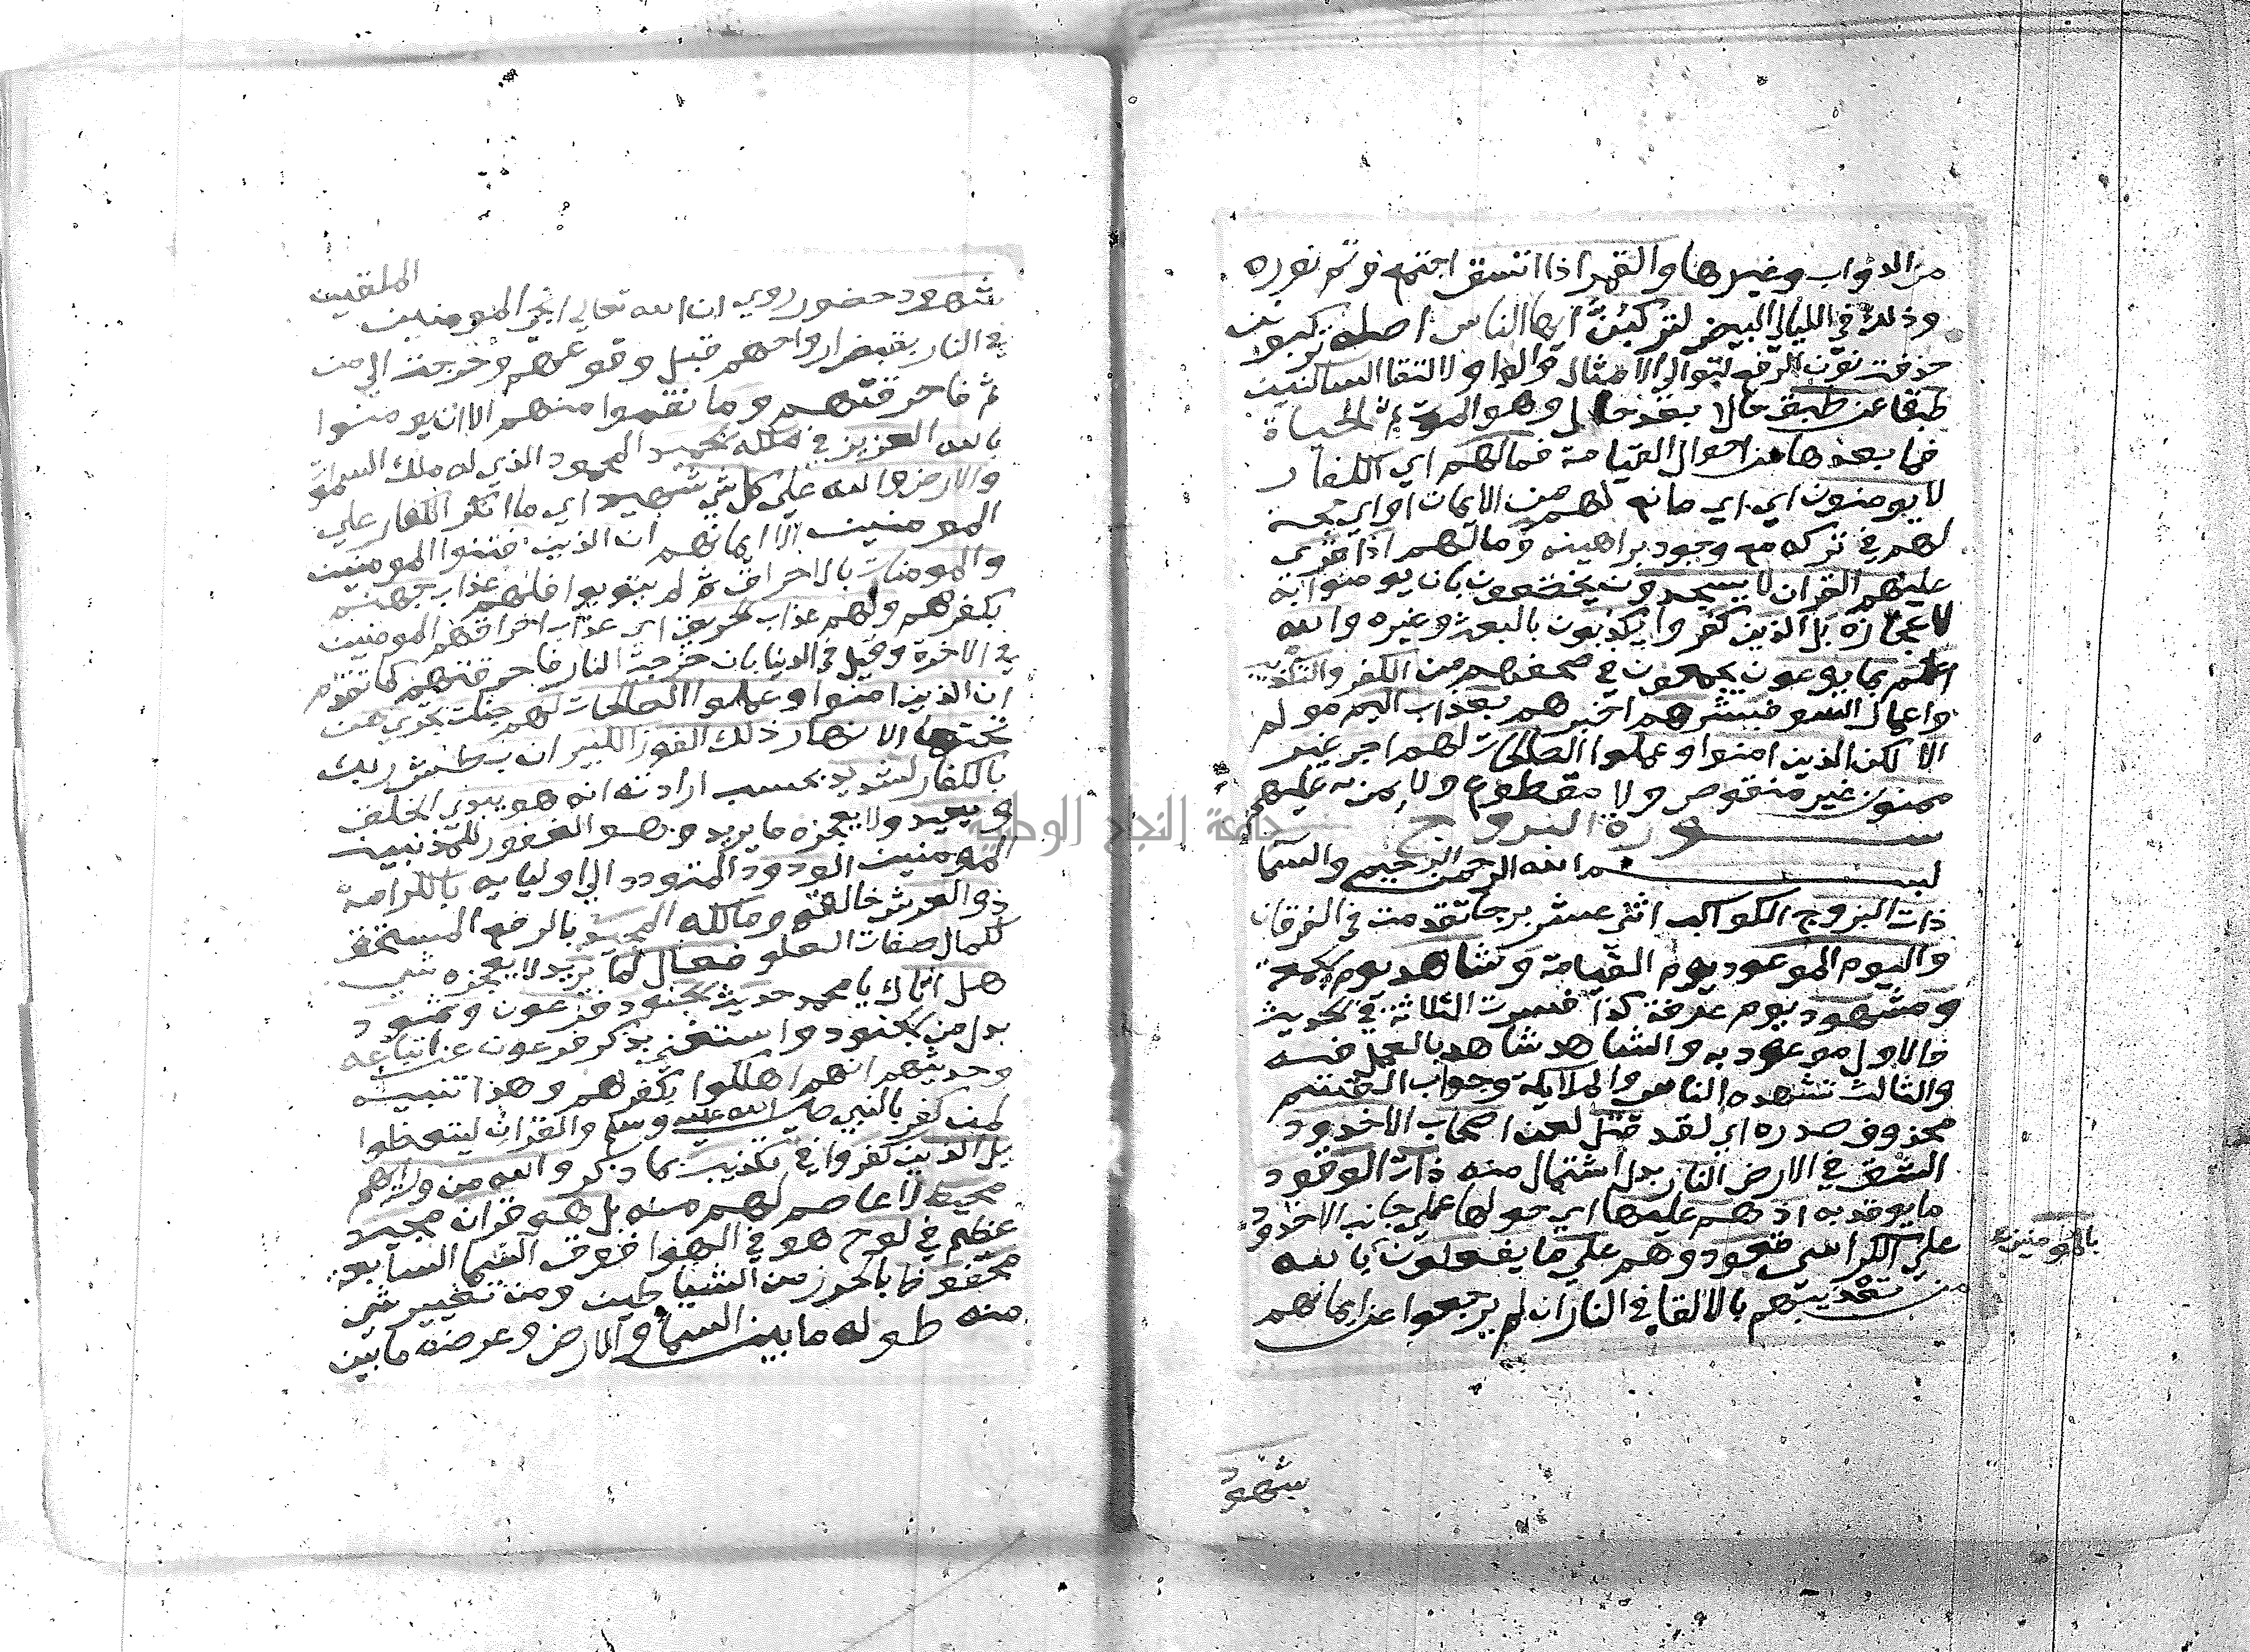 من الدواب وغيرها والقمر اذا اتسق اجتمع وتم نوره
وذلك في الليالي البيض لتركبن ايها الناس اصله تركبونن
حذفت نون الرفع لتوالي الامثال والواو لالتقا الساكنين
طبقا عن طبق حالا بعد حال وهو الموت ثم الحياة
فما بعدها من احوال القيامة فما لهم اي الكفار
لا يومنون اي اي مانع لهم من الايمان او اي حجة
لهم في تركه مع وجود براهينه وما لهم اذا قرى
عليهم القران لا يسجدون يخضعون بان يومنوا به
لاعجازه بل الذين كفروا يكذبون بالبعث وغيره والله
اعلم بما يوعون يجمعون في صحفهم من الكفر والتكذيب
واعمال السو فبشرهم اخبرهم بعذاب اليم مولم
الا لكن الذين امنوا وعملوا الصالحات لهم اجر غير
ممنون غير منقوص ولا مقطوع ولا يمن به عليهم
سورة البروج
بسم الله الرحمن الرحيم والسما
ذات البروج الكواكب اثنى عشر برجا تقدمت في الفرقان
واليوم الموعود يوم القيامة وشاهد يوم الجمعة
ومشهود يوم عرفة كذا فسرت الثلاثة في الحديث
فالاول موعود به والشاهد شاهد بالعمل فيه
والثالث تشهده الناس والملايكة وجواب القسم
محذوف صدره اي لقد قتل لعن اصحاب الاخدود
الشق في الارض النار بدل اشتمال منه ذات الوقود
ما يوقد به اذ هم عليها اي حولها على جانب الاخدود
على الكراسي قعود وهم على ما يفعلون بالله
بالمومنين
من تعذيبهم بالالقا في النار ان لم يرجعوا عن ايمانهم
شهود
شهود حضور روي ان الله تعالى انجى المومنين الملقين
في النار بقبض ارواحهم قبل وقوعهم وخرجت الى من
ثم فاحرقتهم وما نقموا منهم الا ان يومنوا
بالله العزيز في ملكه الحميد المحمود الذي له ملك السموات
والارض والله على كل شي شهيد اي ما انكر الكفار على
المومنين الا ايمانهم ان الذين فتنوا المومنين
والمومنات بالاحراق ثم لم يتوبوا فلهم عذاب جهنم
بكفرهم ولهم عذاب الحريق اي عذاب احراقهم المومنين
في الاخرة وقيل في الدنيا بان خرجت النار فاحرقتهم كما تقدم
ان الذين امنوا وعملوا الصالحات لهم جنات تجري من
تحتها الانهار ذلك الفوز الكبير ان بطش ربك
بالكفار لشديد بحسب ارادته انه هو يبدي الخلق
ويعيد ولا يعجزه ما يريد وهو الغفور للمذنبين
المومنين الودود المتودد الى اوليايه بالكرامة
ذو العرش خالقه ومالكه المجيد بالرفع المستحق
لكمال صفات العلو فعال لما يريد لا يعجزه شي
هل اتاك يا محمد حديث الجنود فرعون وثمود
بدل من الجنود واستغنى بذكر فرعون عن اتباعه
وحديثهم انهم اهلكوا بكفرهم وهذا تنبيه
لمن كفر بالنبي صلى الله عليه وسلم والقران ليتعظوا
بل الذين كفروا في تكذيب بما ذكر والله من ورايهم
محيط لا عاصم لهم منه بل هو قران مجيد
عظيم في لوح هو في الهوا فوق السما السابعة
محفوظ بالحرز من الشياطين ومن تغيير شي
منه طوله ما بين السما والارض وعرضه ما بين